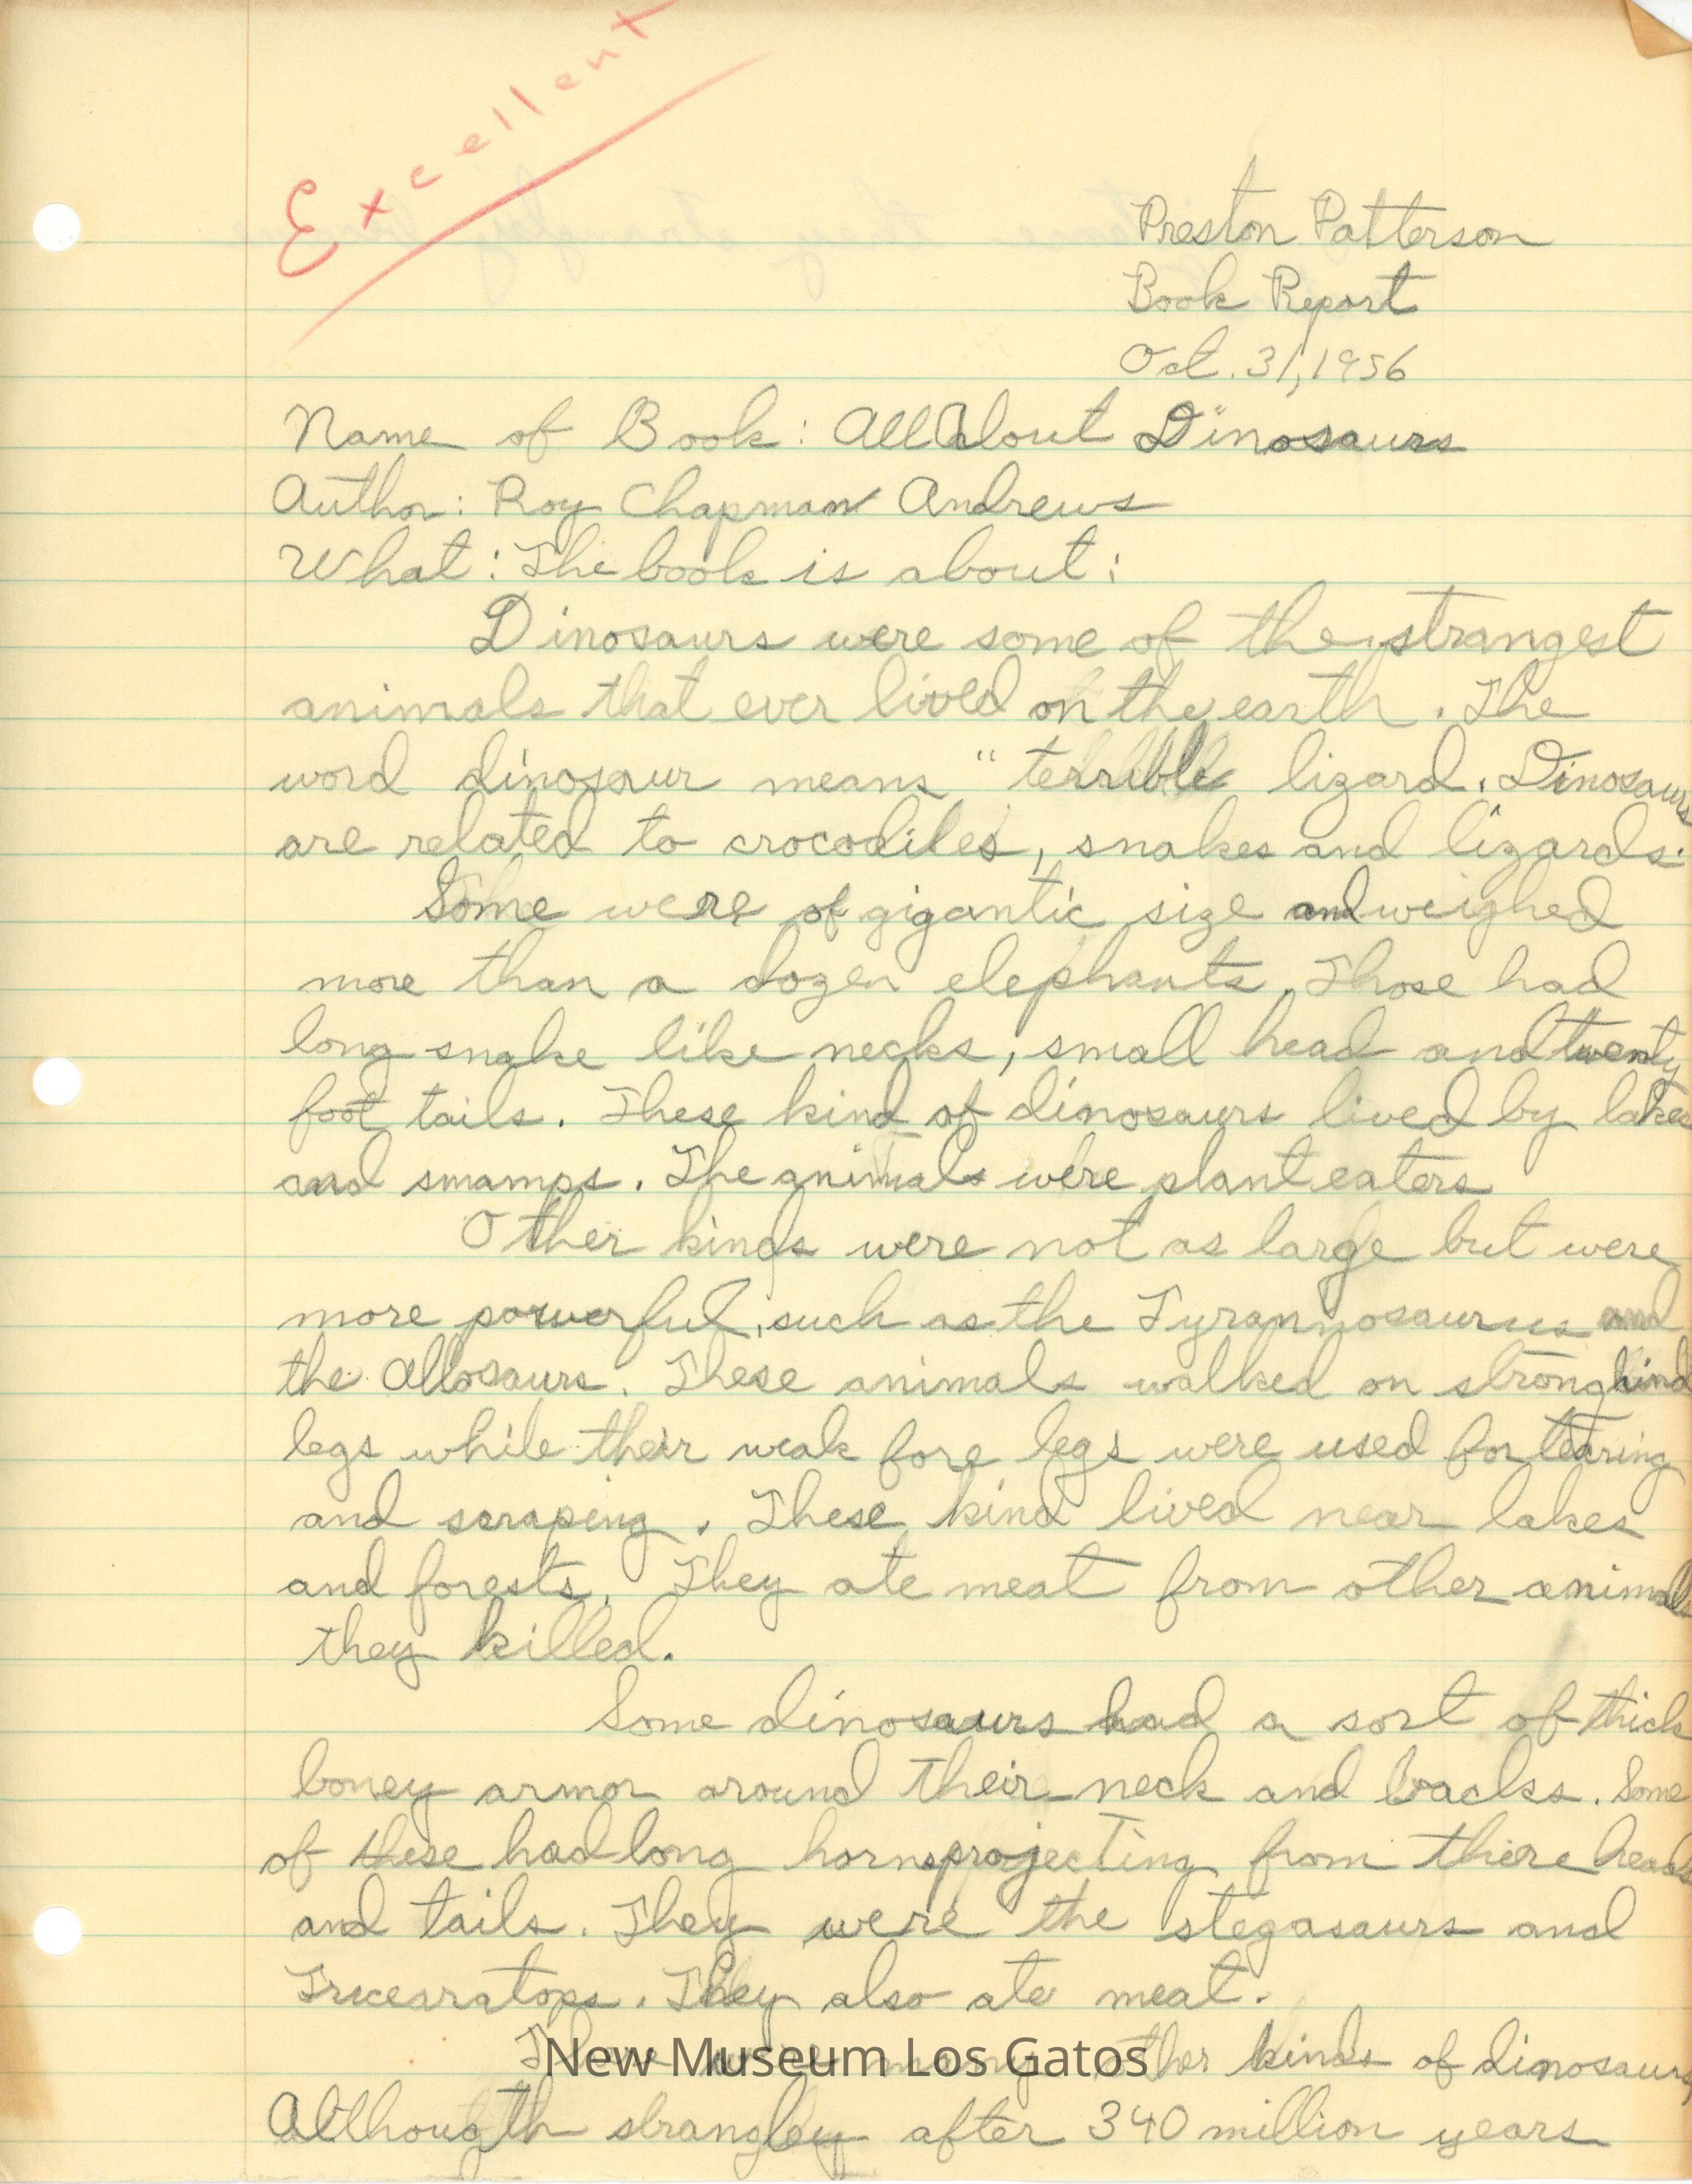 Excellent
Preston Patterson
Book Report
Oct. 31, 1956
Name of Book: All About Dinosaurs
Author: Roy Chapman Andrews
What: The book is about:
Dinosaurs were some of the strangest
animals that ever lived on the earth. The
word dinosaur means "terrible lizard. Dinosaurs
are related to crocodiles, snakes and lizards.
Some were of gigantic size and weighed
more than a dozen elephants. Those had
long snake like necks, small head and twenty
foot tails. These kind of dinosaurs lived by lakes
and smamps. The animals were plant eaters
Other kinds were not as large but were
more powerful, such as the Tyrannosaurus and
the Allosaurs. These animals walked on strong hind
legs while their weak fore legs were used for tearing
and scraping. These kind lived near lakes
and forests. They ate meat from other animals
they killed.
Some dinosaurs had a sort of thick
boney armor around their neck and backs. Some
of these had long horns projecting from there heads
and tails. They were the stegasaurs and
Tricearatops. They also ate meat.
There were many other kinds of dinosaurs,
New Museum Los Gatos
Although strangley after 340 million years